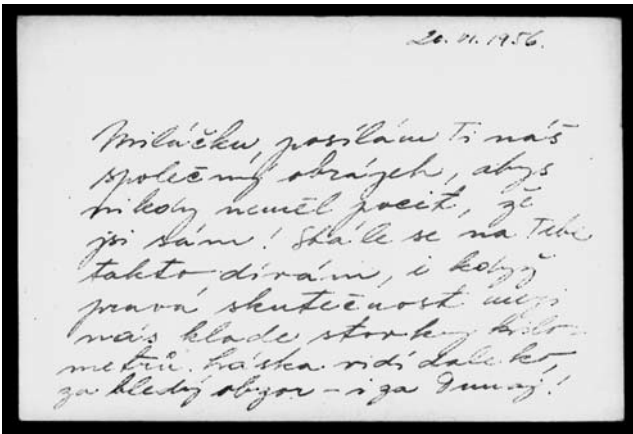 20. VI. 1956.
Miláčku, posílám Ti náš
společný obrázek, abys
nikdy neměl pocit, že
jsi sám! Stále se na Tebe
takto dívám, i když
pravá skutečnost mezi
nás klade stovky kilo-
metrů. Láska vidí daleko,
za hledý obzor – i za Dunaj!